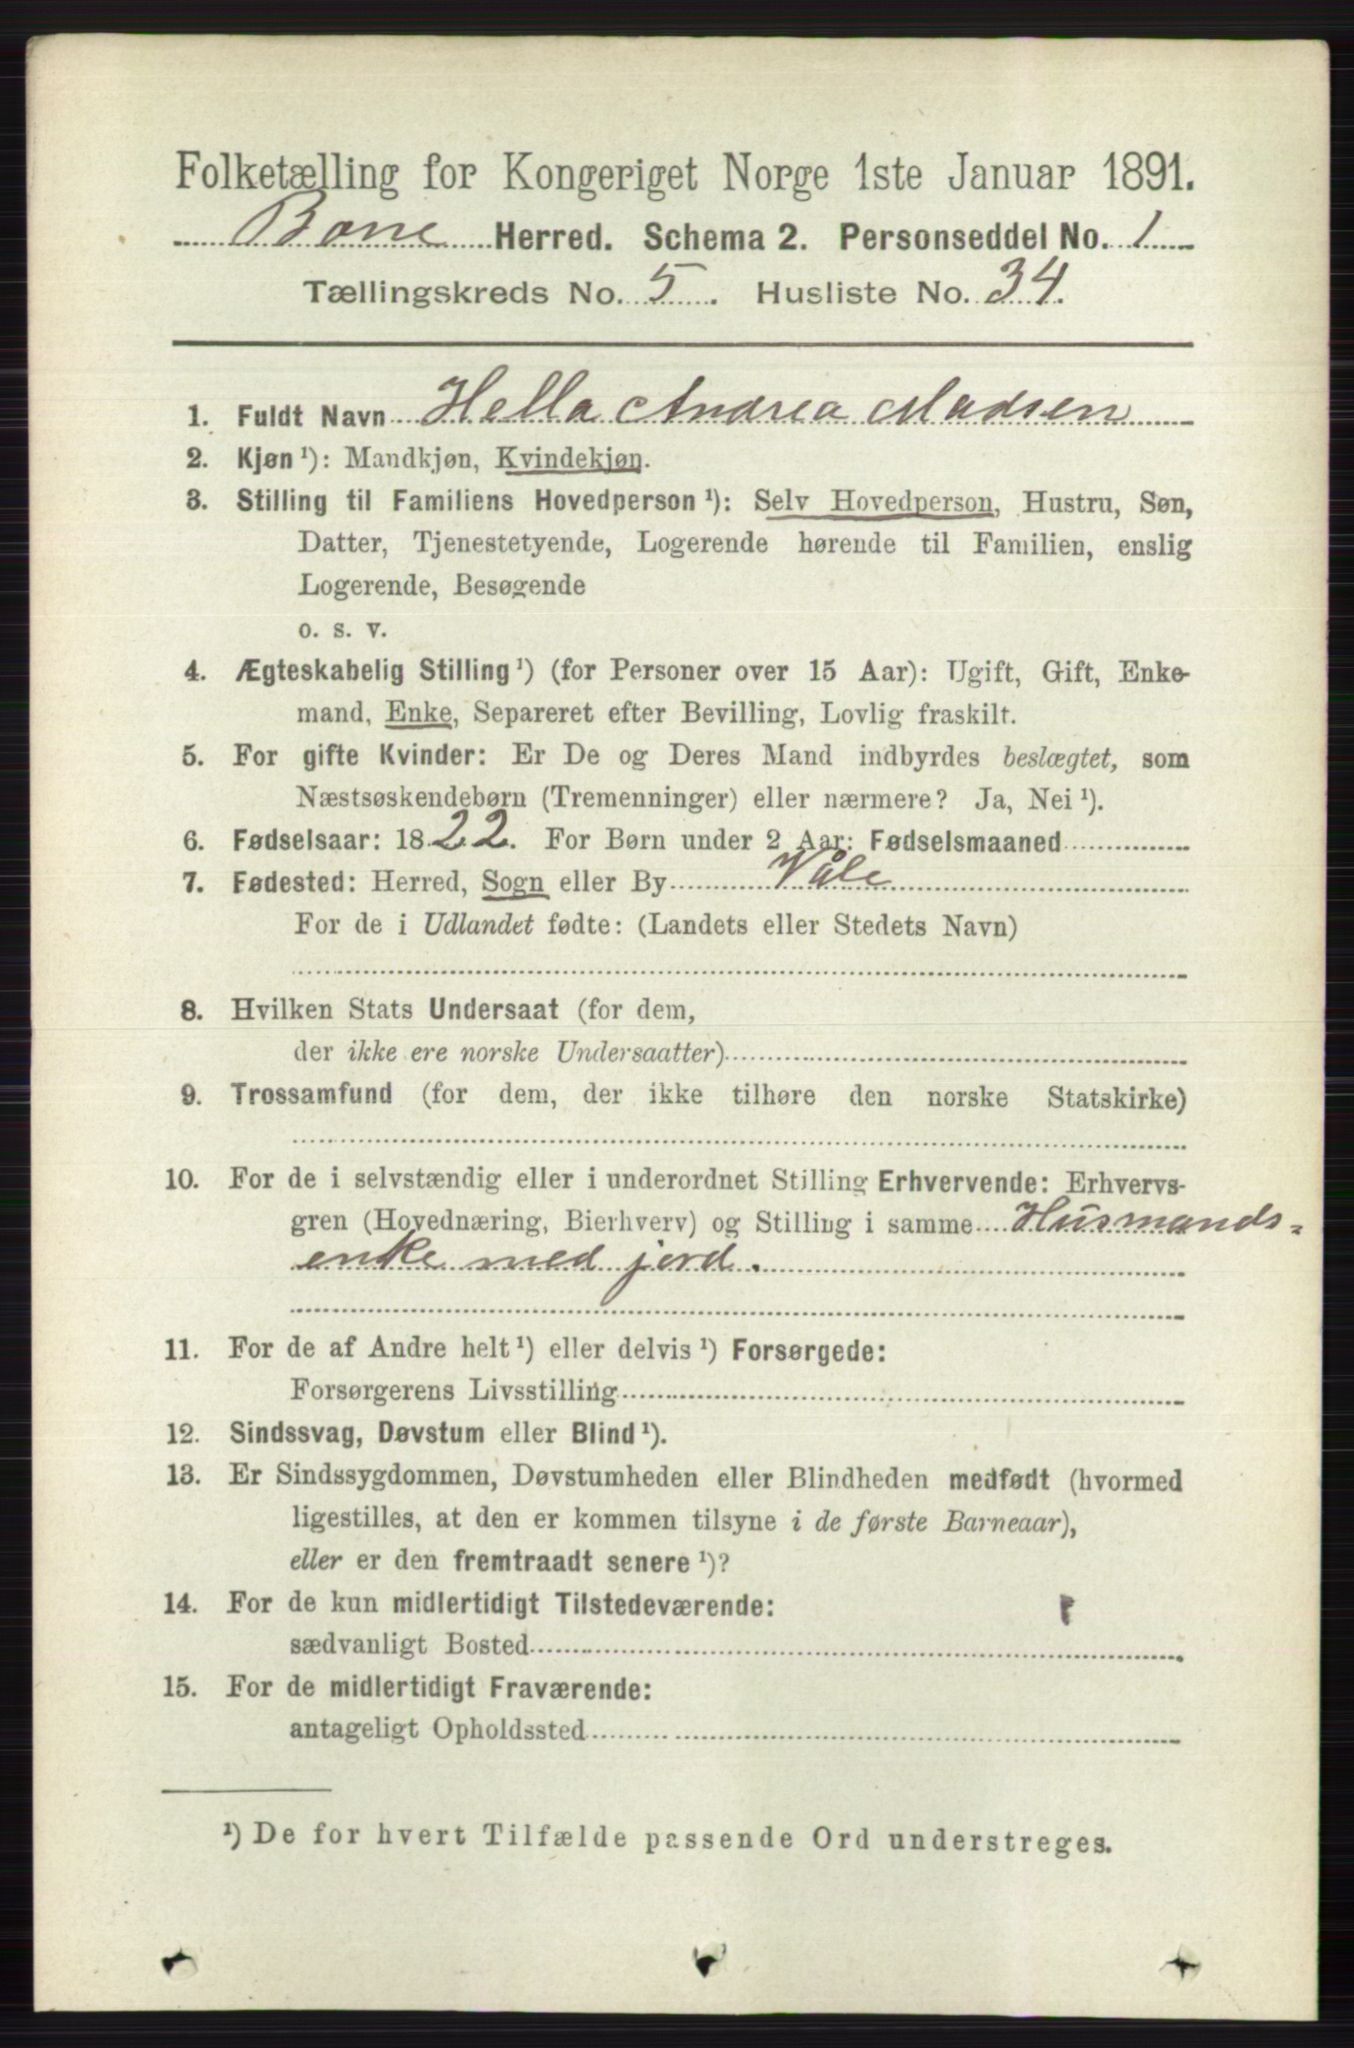 Folketælling for Kongeriget Norge 1ste Januar 1891.
Borre Herred. Schema 2. Personseddel No. 1
Tællingskreds No. 5. Husliste No. 34.
1. Fuldt Navn Hella Andrea Madsen
2. Kjøn ¹): Mandkjøn, Kvindekjøn.
3. Stilling til Familiens Hovedperson ¹): Selv Hovedperson, Hustru, Søn,
Datter, Tjenestetyende, Logerende hørende til Familien, enslig
Logerende, Besøgende
o. s. v.
4. Ægteskabelig Stilling ¹) (for Personer over 15 Aar): Ugift, Gift, Enke-
mand, Enke, Separeret efter Bevilling, Lovlig fraskilt.
5. For gifte Kvinder: Er De og Deres Mand indbyrdes beslægtet, som
Næstsøskendebørn (Tremenninger) eller nærmere? Ja, Nei ¹).
6. Fødselsaar: 1822. For Børn under 2 Aar: Fødselsmaaned
7. Fødested: Herred, Sogn eller By Våle
For de i Udlandet fødte: (Landets eller Stedets Navn)
8. Hvilken Stats Undersaat (for dem,
der ikke ere norske Undersaatter)
9. Trossamfund (for dem, der ikke tilhøre den norske Statskirke)
10. For de i selvstændig eller i underordnet Stilling Erhvervende: Erhvervs-
gren (Hovednæring, Bierhverv) og Stilling i samme Husmands-
enke med jord.
11. For de af Andre helt ¹) eller delvis ¹) Forsørgede:
Forsørgerens Livsstilling
12. Sindssvag, Døvstum eller Blind ¹).
13. Er Sindssygdommen, Døvstumheden eller Blindheden medfødt (hvormed
ligestilles, at den er kommen tilsyne i de første Barneaar),
eller er den fremtraadt senere ¹)?
14. For de kun midlertidigt Tilstedeværende:
sædvanligt Bosted
15. For de midlertidigt Fraværende:
antageligt Opholdssted
¹) De for hvert Tilfælde passende Ord understreges.